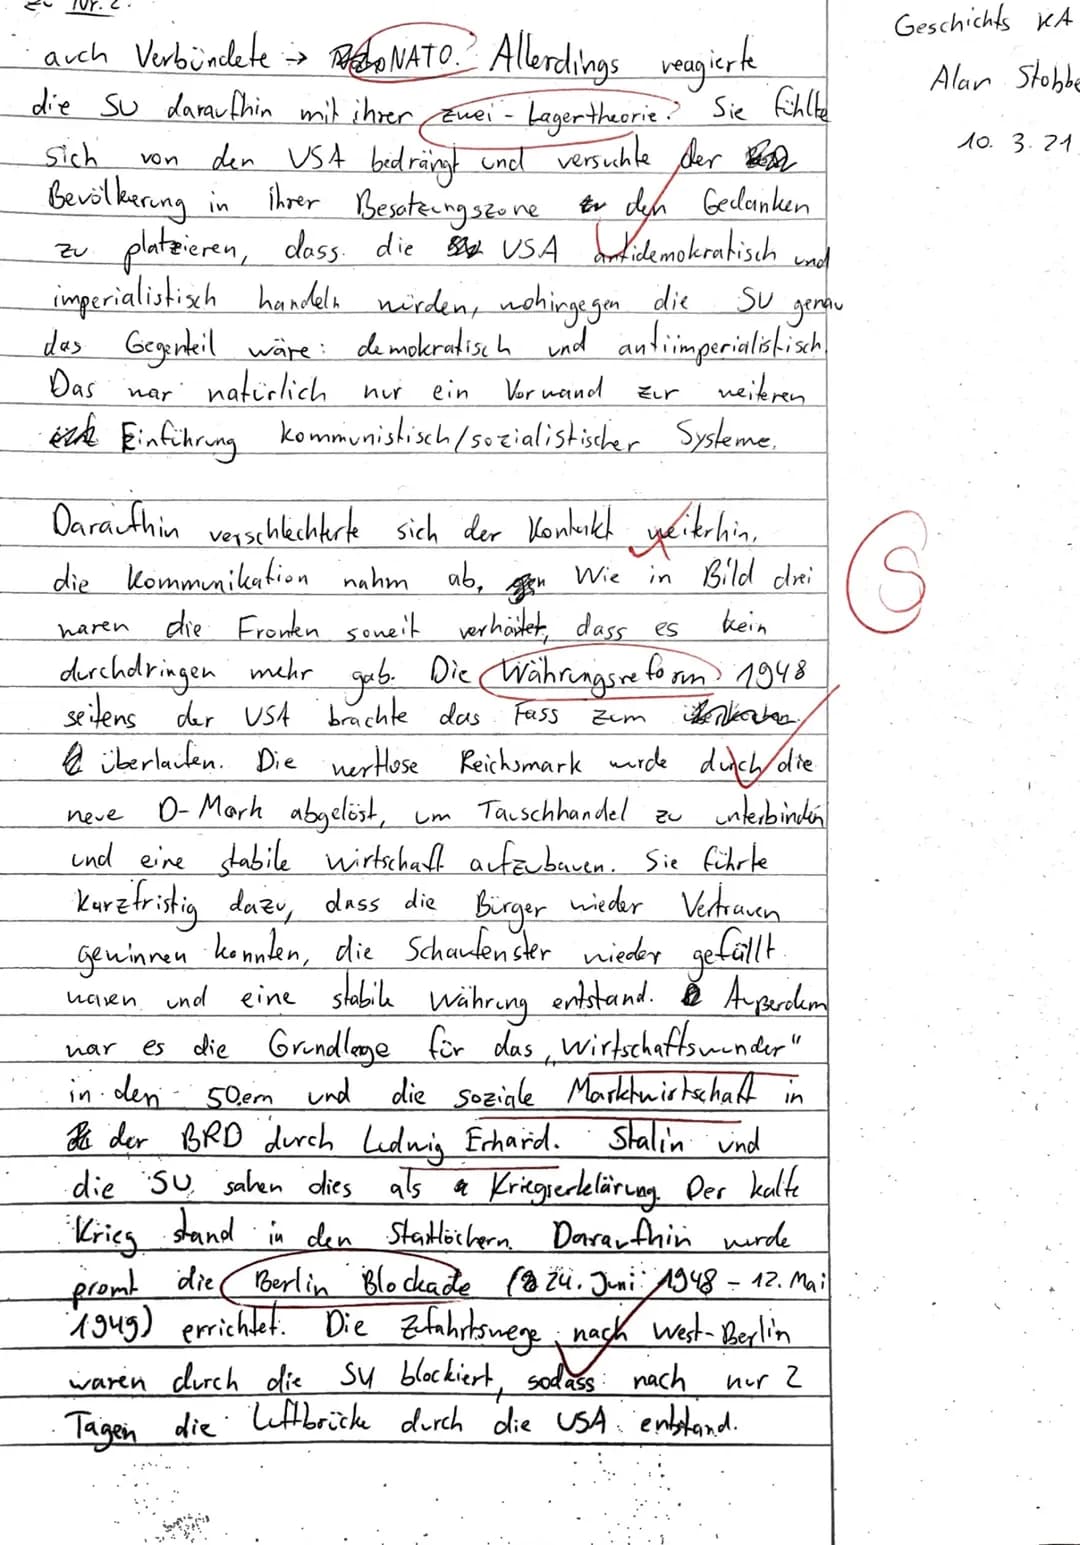 zu Nr. 2.
Geschichts KA
Alan Stobbe
10. 3. 21
auch Verbündete → NATO. Allerdings reagierte
die SU daraufhin mit ihrer zwei-Lagertheorie. Sie fühlte
sich von den USA bedrängt und versuchte der
Bevölkerung in ihrer Besatzungszone den Gedanken
zu platzieren, dass die USA antidemokratisch und
imperialistisch handeln würden, wohingegen die SU genau
das Gegenteil wäre: demokratisch und antiimperialistisch.
Das war natürlich nur ein Vorwand zur weiteren
Einführung kommunistisch/sozialistischer Systeme.
Daraufhin verschlechterte sich der Kontakt weiterhin,
die Kommunikation nahm ab, Wie in Bild drei
waren die Fronten soweit verhärtet, dass es kein
durchdringen mehr gab. Die Währungsreform 1948
seitens der USA brachte das Fass zum
überlaufen. Die wertlose Reichsmark wurde durch die
neue D-Mark abgelöst, um Tauschhandel zu unterbinden
und eine stabile wirtschaft aufzubauen. Sie führte
kurzfristig dazu, dass die Bürger wieder Vertrauen
gewinnen konnten, die Schaufenster wieder gefüllt
waren und eine stabile Währung entstand. Außerdem
war es die Grundlage für das „Wirtschaftswunder"
in den 50ern und die soziale Marktwirtschaft in
der BRD durch Ludwig Erhard. Stalin und
die SU sahen dies als Kriegserklärung. Der kalte
Krieg stand in den Startlöchern. Daraufhin wurde
promt die Berlin Blockade (24. Juni 1948 - 12. Mai
1949) errichtet. Die Zufahrtswege nach West-Berlin
waren durch die SU blockiert, sodass nach nur 2
Tagen die Luftbrücke durch die USA entstand.
S